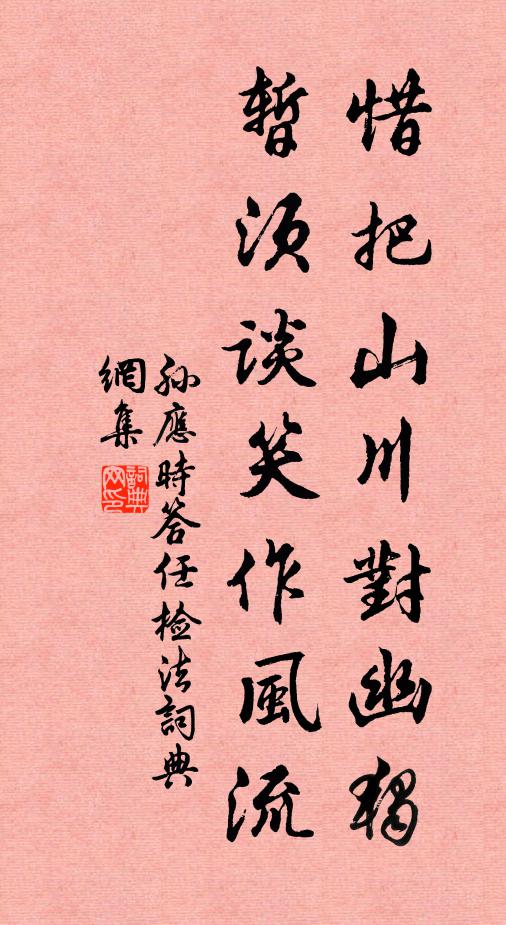 惜把山川對幽獨
暫須談笑作風流
孫應時答任检法詞典
網集
詞典網印